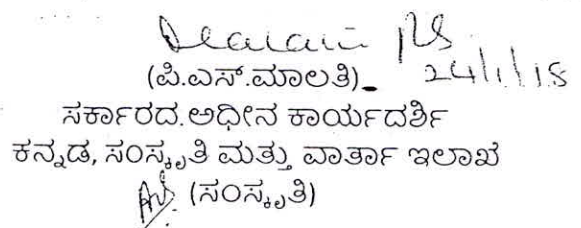 24/1/18
(ಪಿ.ಎಸ್.ಮಾಲತಿ)
ಸರ್ಕಾರದ.ಅಧೀನ ಕಾರ್ಯದರ್ಶಿ
ಕನ್ನಡ, ಸಂಸ್ಕೃತಿ ಮತ್ತು ವಾರ್ತಾ ಇಲಾಖೆ
(ಸಂಸ್ಕೃತಿ)